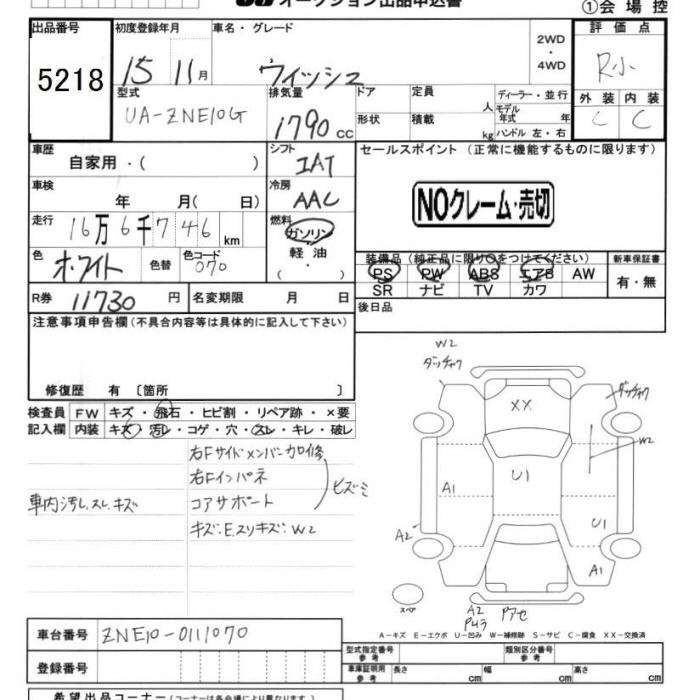 オークション出品申込書 ①会場控
出品番号 初度登録年月 車名・グレード 2WD ・ 4WD 評価点
5218 15 11月 ウィッシュ R小
型式 排気量 ドア 定員 人 ディーラー・並行 外装 内装
UA-ZNE10G 1790 cc 形状 積載 kg モデル年式 年 ハンドル 左・右 C C
車歴 自家用・( ) シフト IAT セールスポイント (正常に機能するものに限ります)
車検 年 月( 日) 冷房 AAC NOクレーム・売切
走行 16万6千746km 燃料 ガソリン
色 ホワイト 色替 色コード 070 軽油 ・ 装備品 (純正品に限り○をつけてください) 新車保証書
PS PW ABS エアB AW 有・無
SR ナビ TV カワ
R券 11730 円 名変期限 月 日 後日品
注意事項申告欄(不具合内容等は具体的に記入して下さい)
修復歴 有 〔箇所 〕
検査員 FW キズ・飛石・ヒビ割・リペア跡・×要
記入欄 内装 キズ・汚レ・コゲ・穴・スレ・キレ・破レ
右Fサイドメンバー加修
右Fインパネ
コアサポート
ヒズミ
車内汚し.スレ.キズ
キズ.E.スリキズ.W2
W2
ダッチャク
ダッチャク
XX
W2
A1 U1
U1
A2
A1
スペア
A2 Pアセ
Pムラ
A-キズ E-エクボ U-凹み W-補修跡 S-サビ C-腐食 XX-交換済
車台番号 ZNE10-0111070
型式指定番号 参考 類別区分番号 参考
登録番号 車庫証明用 参考 長さ cm 幅 cm 高さ cm
希望出品コーナー (コーナーは各会場により異なります。)